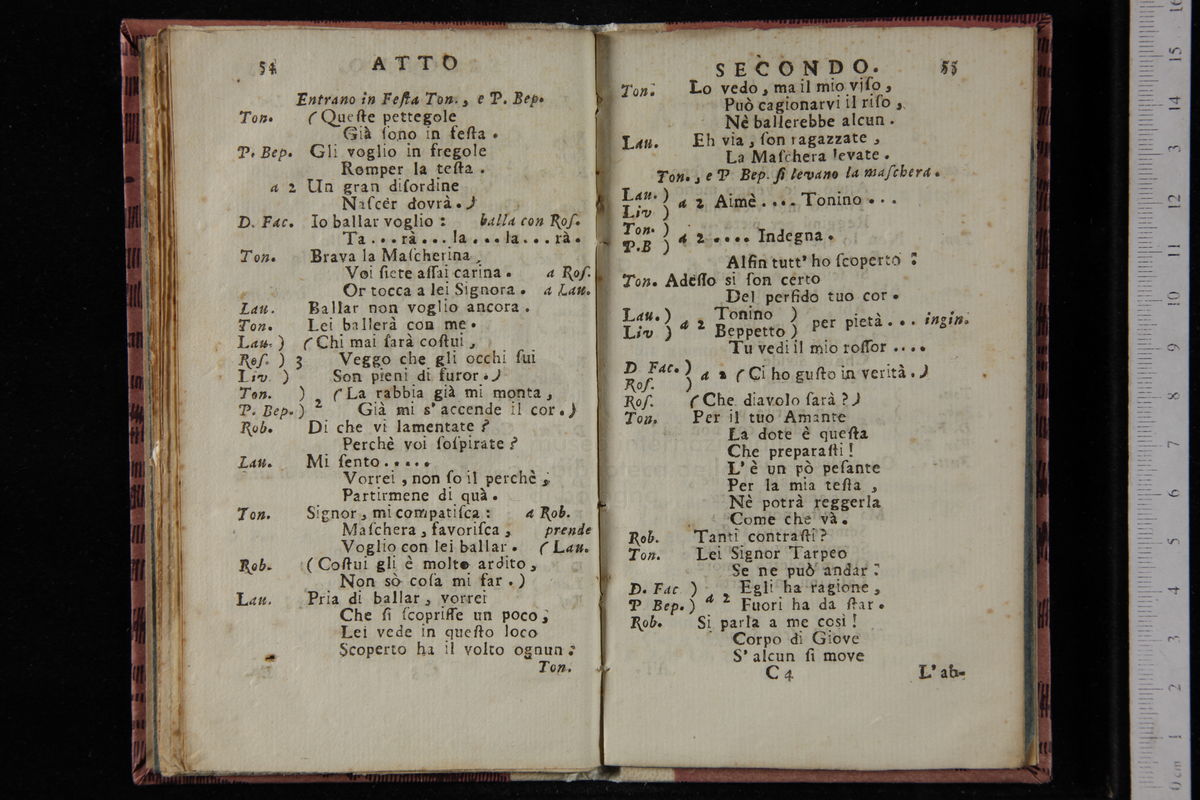 54 ATTO
Entrano in Feſta Ton., e P. Bep.
Ton. (Queſte pettegole
Già ſono in feſta.
P. Bep. Gli voglio in fregole
Romper la teſta.
a 2 Un gran diſordine
Naſcer dovrà.)
D. Fac. Io ballar voglio: balla con Roſ.
Ta...rà...la...la...rà.
Ton. Brava la Maſcherina,
Voi ſiete aſſai carina. a Roſ.
Or tocca a lei Signora. a Lau.
Lau. Ballar non voglio ancora.
Ton. Lei ballerà con me.
Lau. ) (Chi mai ſarà coſtui,
Roſ. ) 3 Veggo che gli occhi ſui
Liv. ) Son pieni di furor.)
Ton. ) 2 (La rabbia già mi monta,
P. Bep. ) Già mi s'accende il cor.)
Rob. Di che vi lamentate?
Perchè voi ſoſpirate?
Lau. Mi ſento.....
Vorrei, non ſo il perchè;
Partirmene di quà.
Ton. Signor, mi compatiſca: a Rob.
Maſchera, favoriſca, prende
Voglio con lei ballar. (Lau.
Rob. (Coſtui gli è molto ardito,
Non sò coſa mi far.)
Lau. Pria di ballar, vorrei
Che ſi ſcopriſſe un poco;
Lei vede in queſto loco
Scoperto ha il volto ognun:
Ton.
SECONDO. 55
Ton. Lo vedo, ma il mio viſo,
Può cagionarvi il riſo,
Nè ballerebbe alcun.
Lau. Eh via, ſon ragazzate,
La Maſchera levate.
Ton., e P Bep. ſi levano la maſchera.
Lau. ) a 2 Aimè.... Tonino...
Liv )
Ton. ) a 2 .... Indegna.
P.B )
Alfin tutt' ho ſcoperto:
Ton. Adeſſo si ſon certo
Del perfido tuo cor.
Lau. ) a 2 Tonino ) per pietà... ingin.
Liv ) Beppetto )
Tu vedi il mio roſſor....
D Fac. ) a 2 (Ci ho guſto in verità.)
Roſ. )
Roſ. (Che diavolo ſarà?)
Ton. Per il tuo Amante
La dote è queſta
Che preparaſti!
L' è un pò peſante
Per la mia teſta,
Nè potrà reggerla
Come che và.
Rob. Tanti contraſti?
Ton. Lei Signor Tarpeo
Se ne può andar:
D. Fac ) a 2 Egli ha ragione,
P Bep. ) Fuori ha da ſtar.
Rob. Si parla a me così!
Corpo di Giove
S' alcun ſi move
C 4 L' ab-